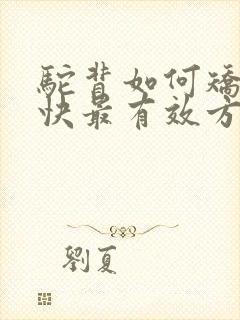 駝背如何矯
快最有效方
劉夏